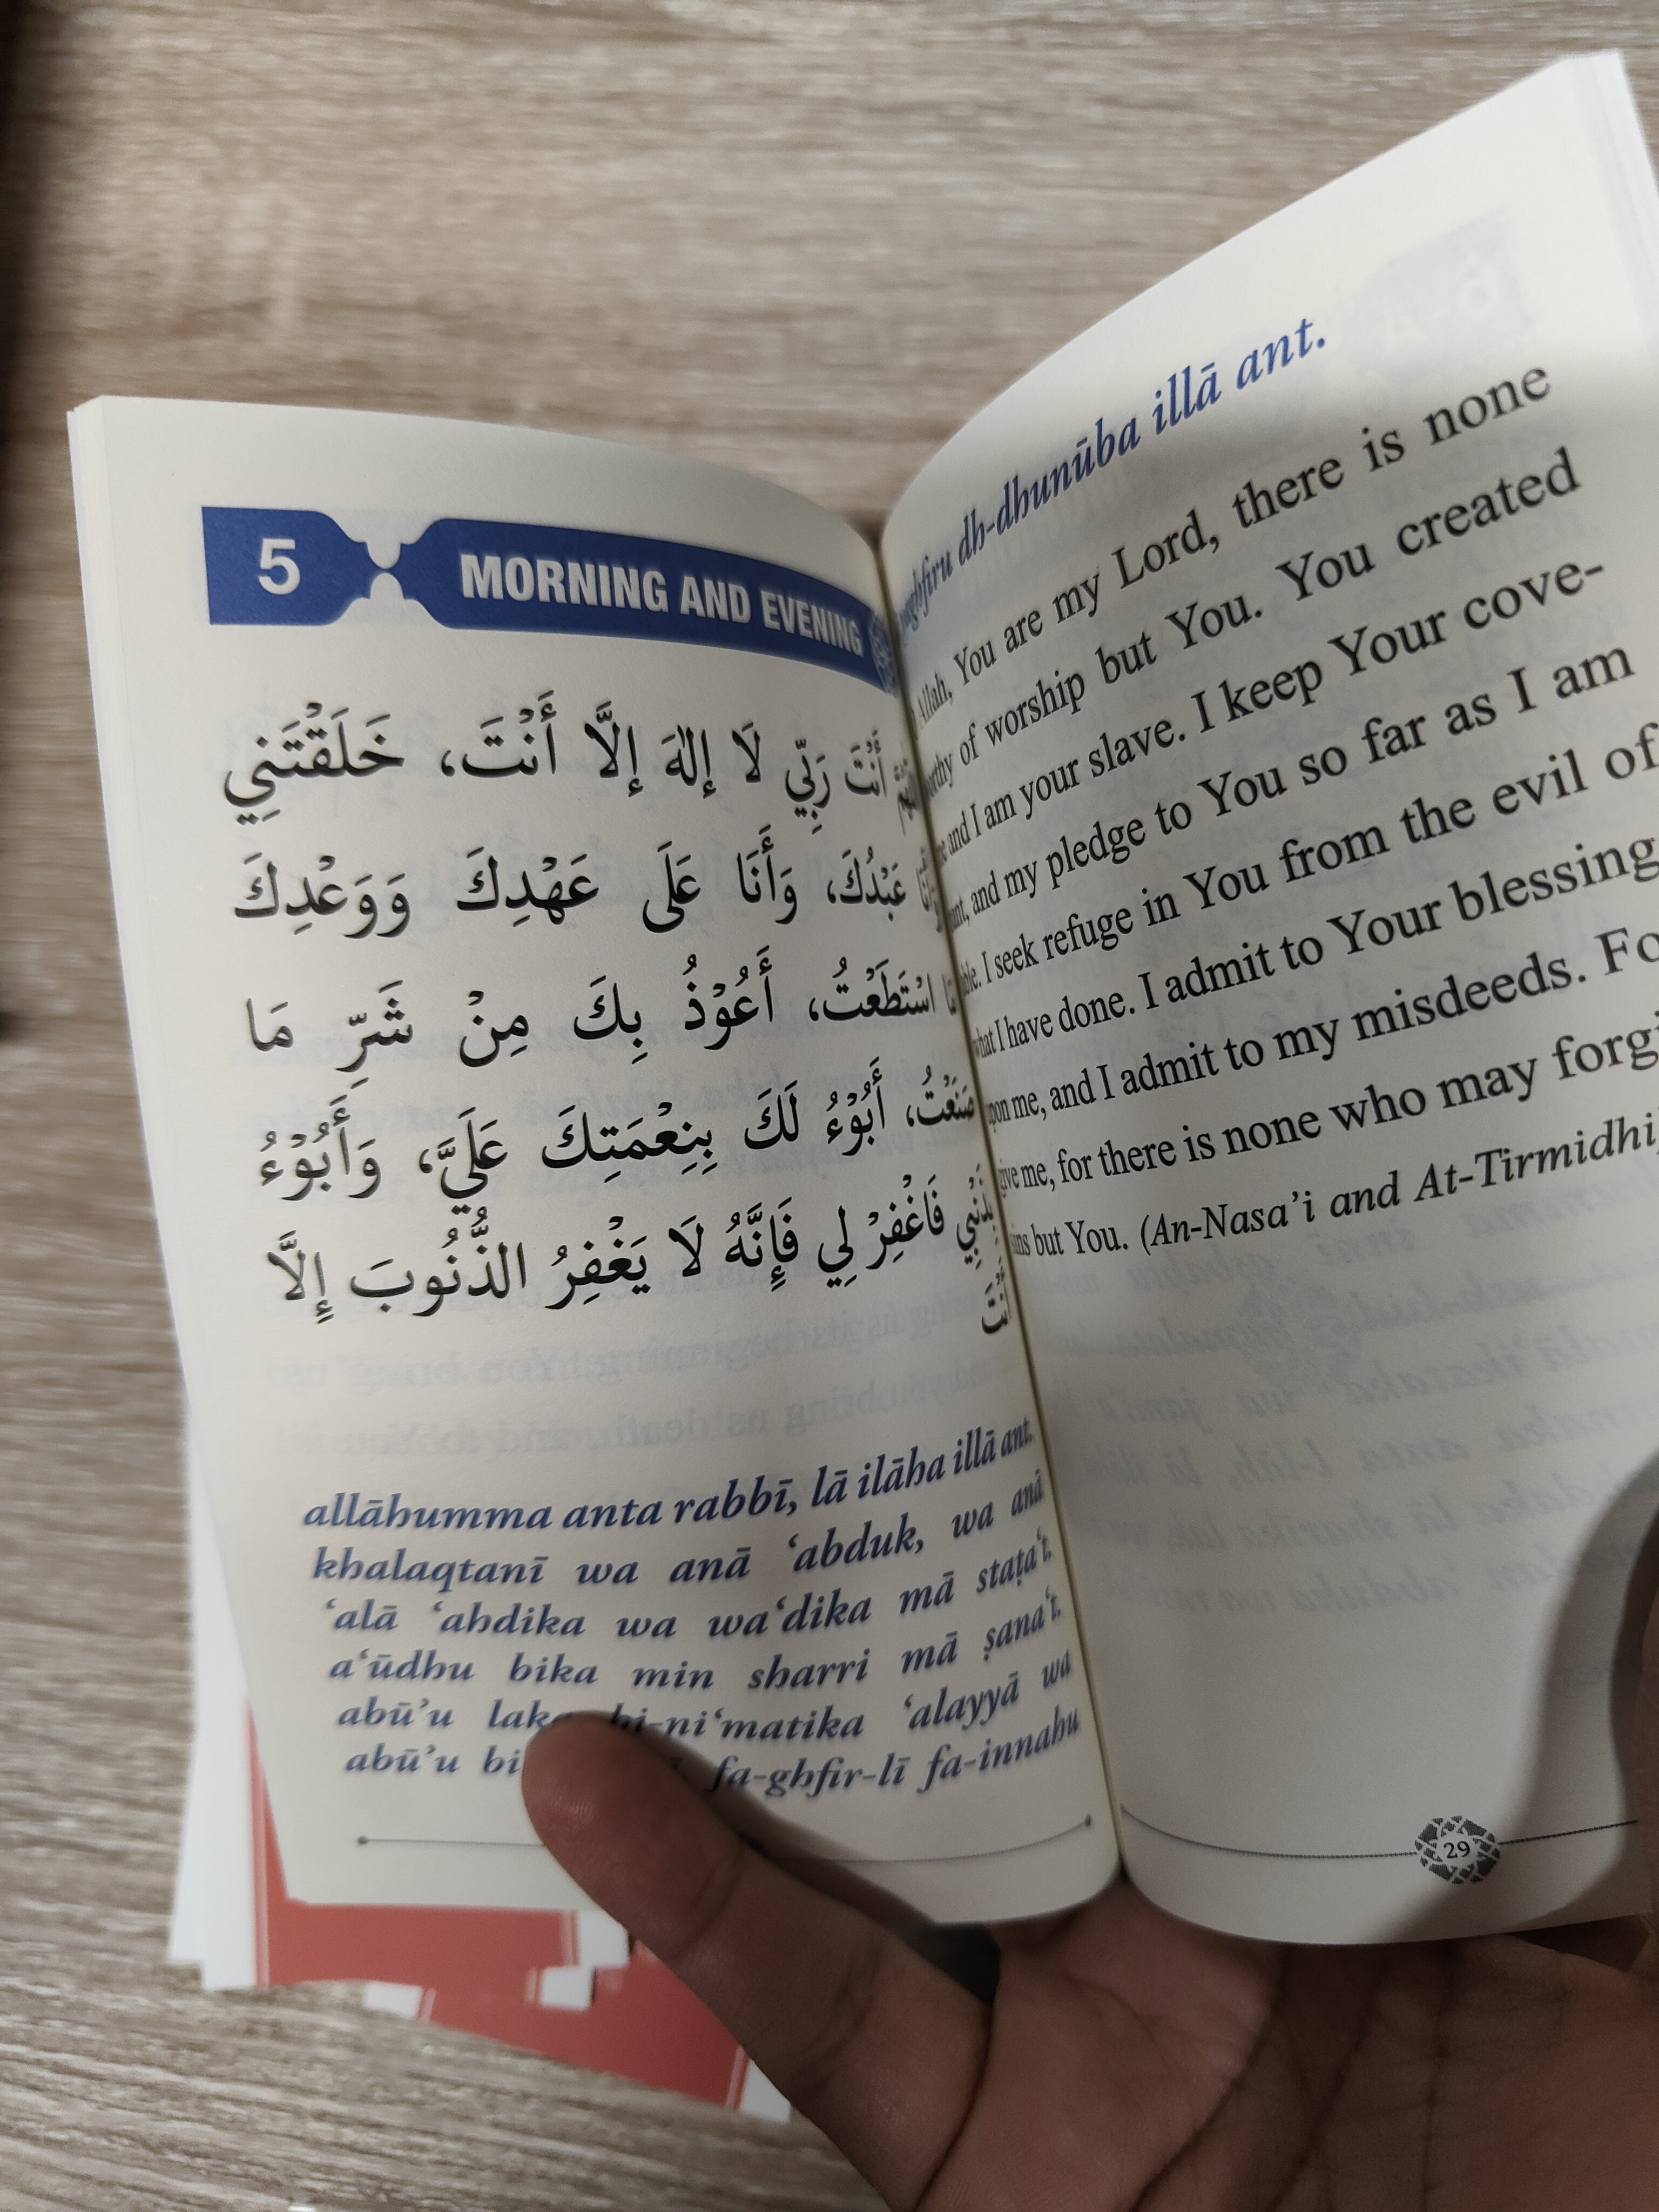 5
MORNING AND EVENING
أَنْتَ رَبِّي لَا إِلٰهَ إِلَّا أَنْتَ، خَلَقْتَنِي
عَبْدُكَ، وَأَنَا عَلَى عَهْدِكَ وَوَعْدِكَ
مَا اسْتَطَعْتُ، أَعُوْذُ بِكَ مِنْ شَرِّ مَا
صَنَعْتُ، أَبُوْءُ لَكَ بِنِعْمَتِكَ عَلَيَّ، وَأَبُوْءُ
بِذَنْبِي فَاغْفِرْ لِي فَإِنَّهُ لَا يَغْفِرُ الذُّنُوبَ إِلَّا
أَنْتَ
allāhumma anta rabbī, lā ilāha illā ant.
khalaqtanī wa anā ‘abduk, wa anā
‘alā ‘ahdika wa wa‘dika mā staṭa‘t.
a‘ūdhu bika min sharri mā ṣana‘t.
abū’u laka bi-ni‘matika ‘alayyā wa
abū’u bi fa-ghfir-lī fa-innahu
dh-dhunūba illā ant.
Allah, You are my Lord, there is none
of worship but You. You created
and I am your slave. I keep Your cove-
and my pledge to You so far as I am
I seek refuge in You from the evil of
what I have done. I admit to Your blessing
me, and I admit to my misdeeds. Fo
me, for there is none who may forgi
but You. (An-Nasa’i and At-Tirmidhi)
29